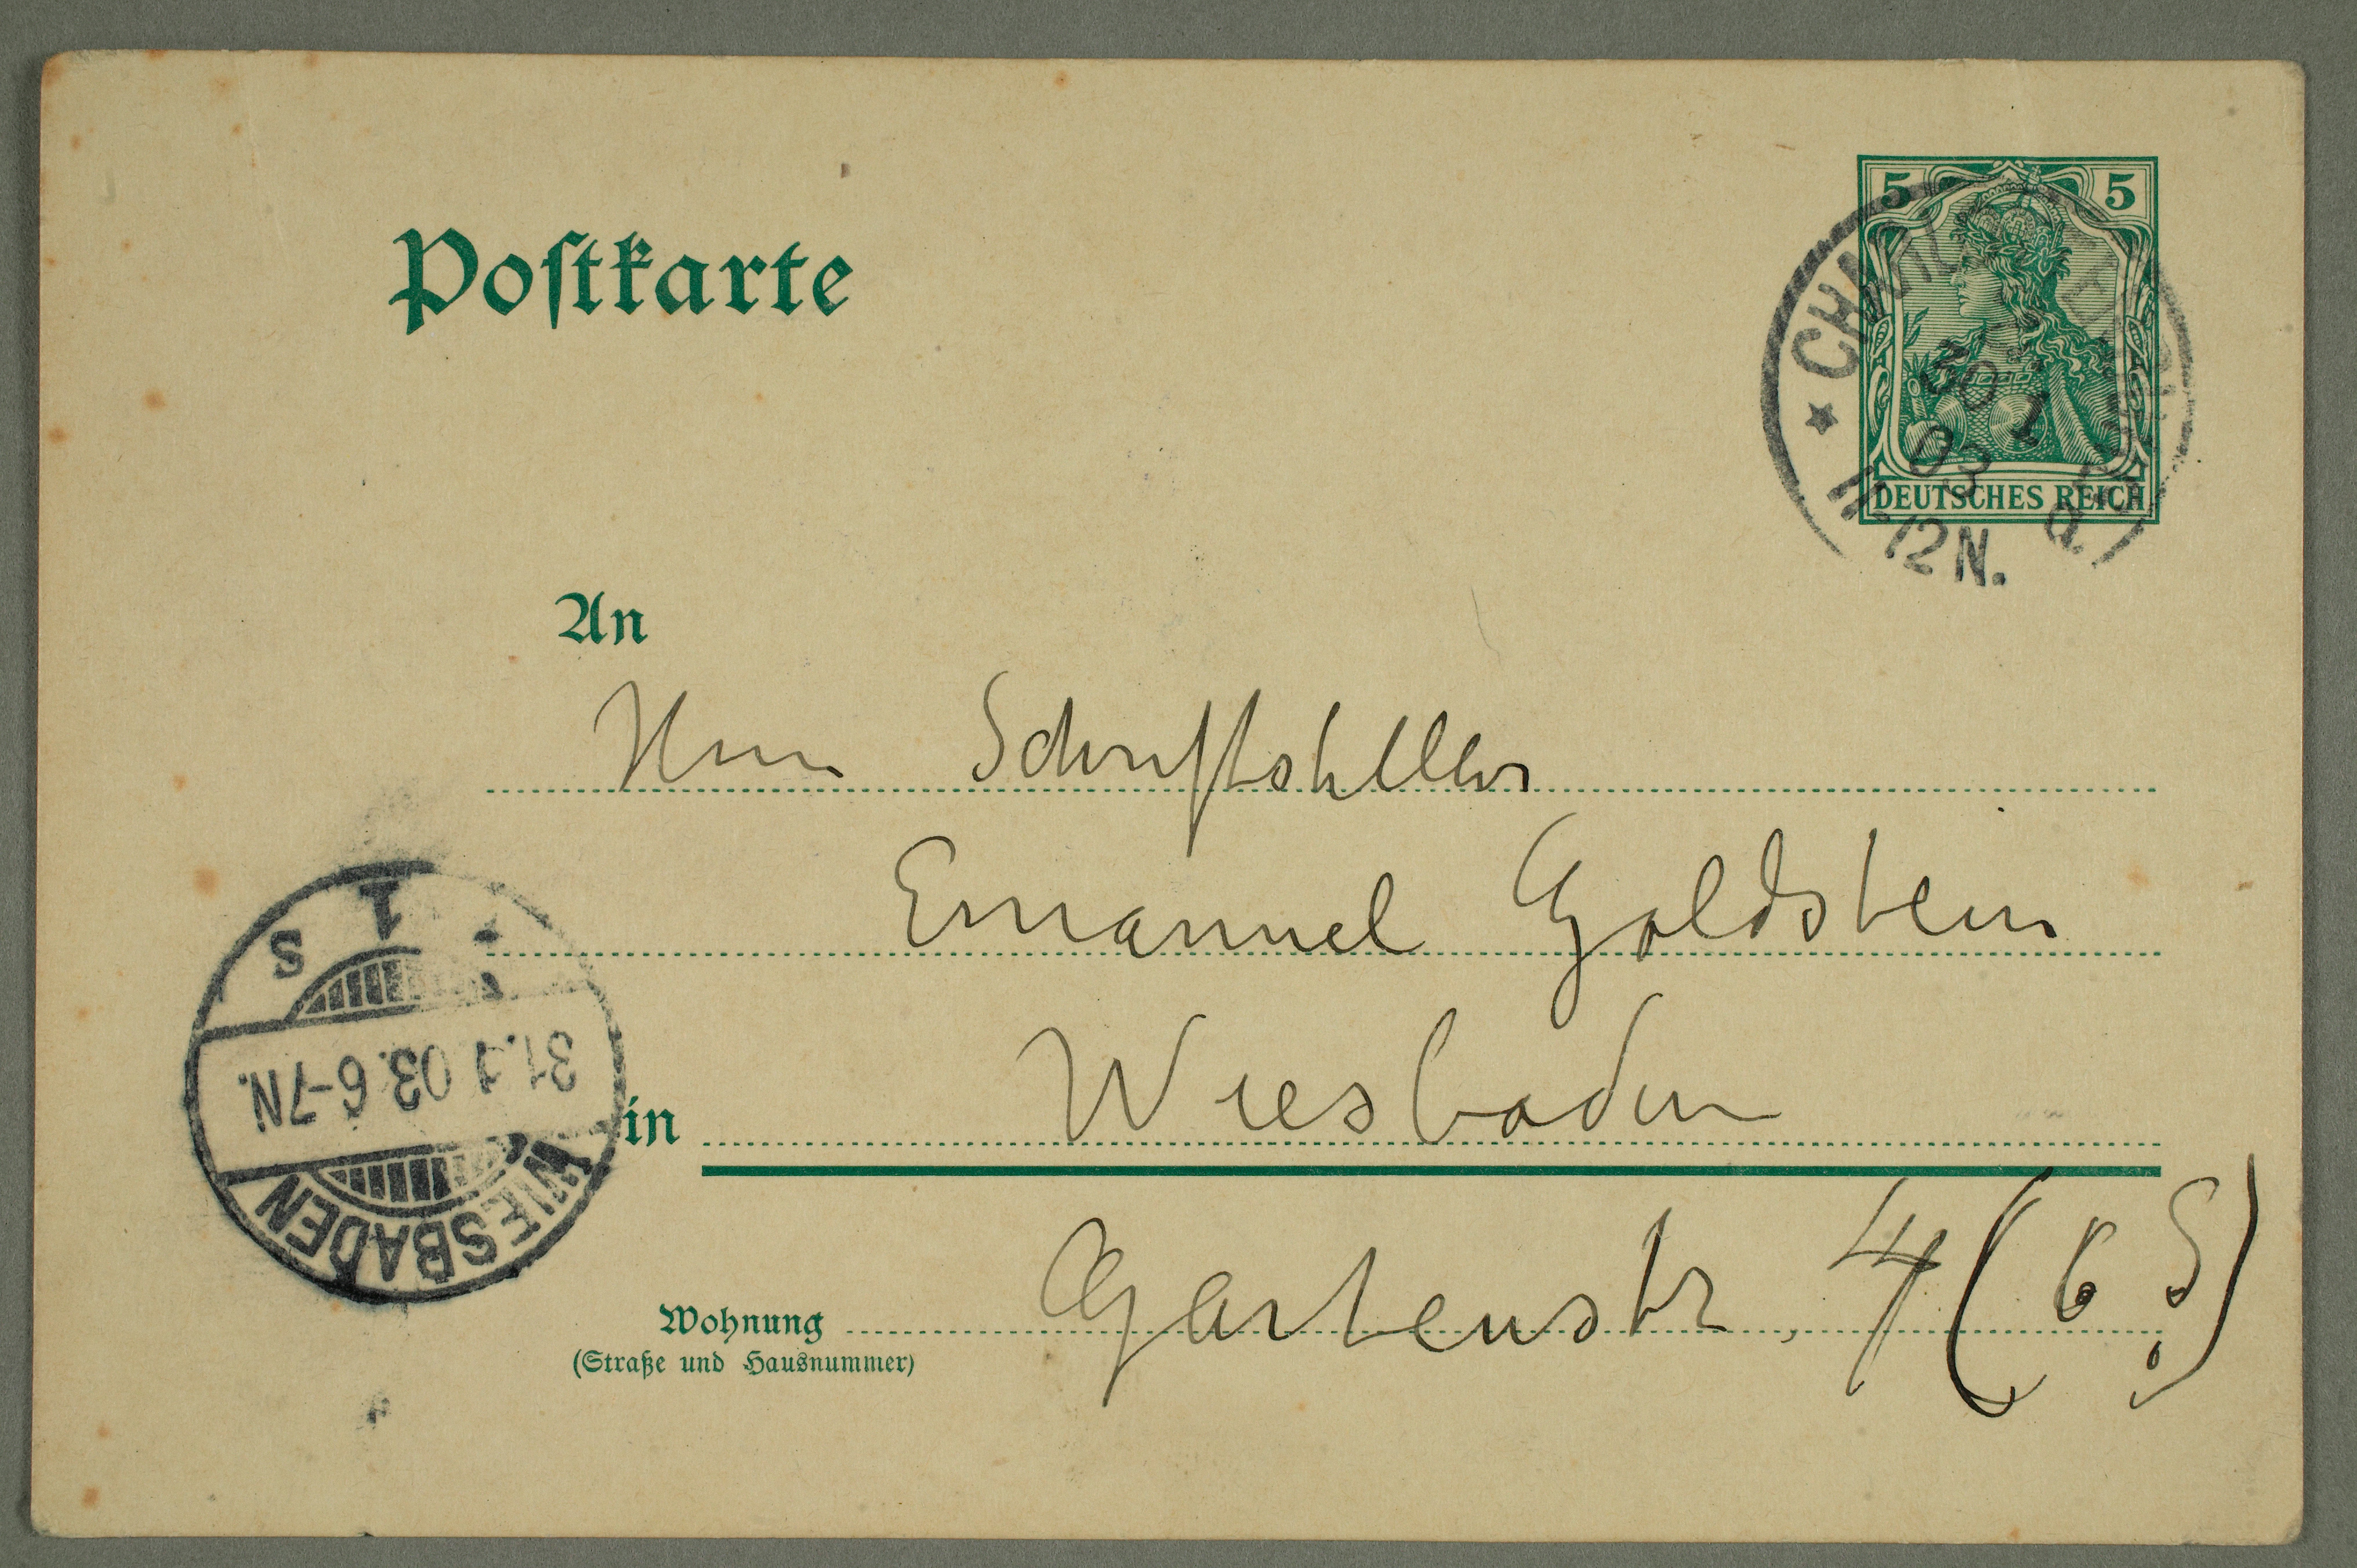 Postkarte
5 5
DEUTSCHES REICH
30 1
03
11-12 N.
An
Herrn Schriftsteller
Emanuel Goldstein
in Wiesbaden
Wohnung Gartenstr. 4 (6 ?)
(Straße und Hausnummer)
WIESBADEN
31.1 03. 6-7N.
1
S